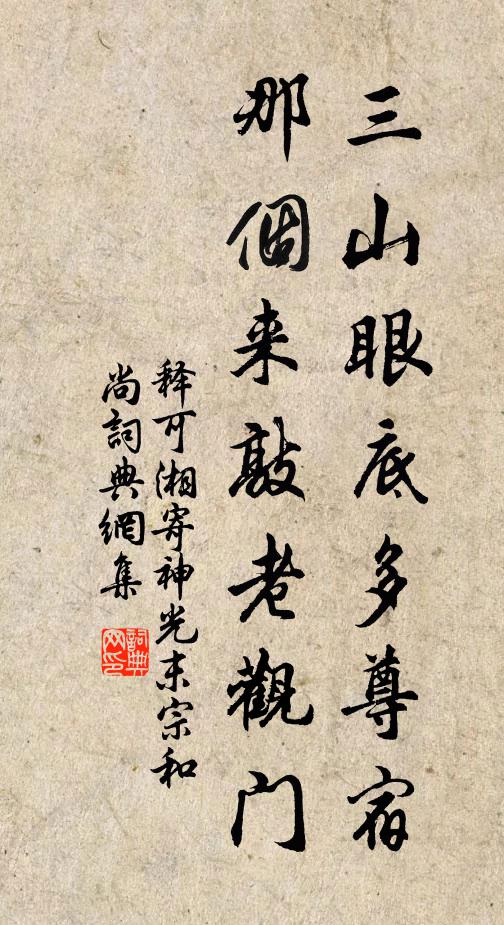 三山眼底多尊宿
那個来敲老觀门
释可湘寄神光末宗和
尚詞典網集
詞典
网印